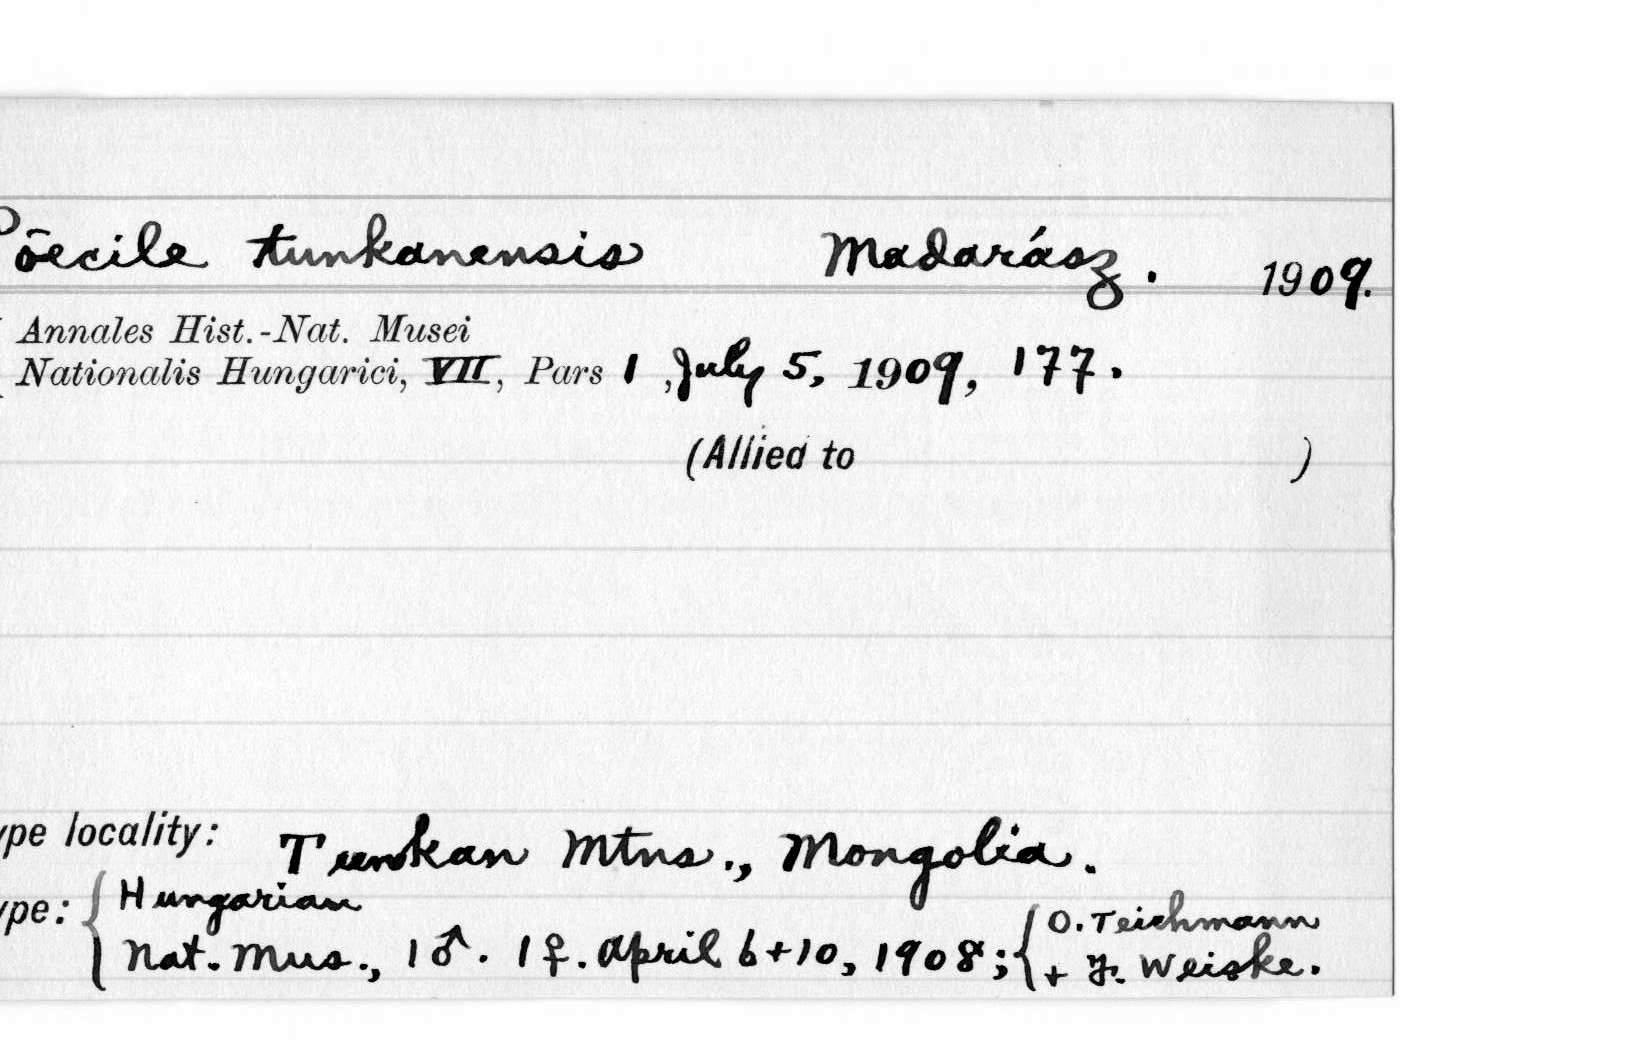 Pōecile tunkanensis Madarász. 1909.
Annales Hist.-Nat. Musei
Nationalis Hungarici, VII, Pars 1, July 5, 1909, 177.
(Allied to )
ype locality: Tunkan Mtns., Mongolia.
ype: { Hungarian
Nat. Mus., 1♂. 1♀. April 6+10, 1908; { O. Teichmann
+ Weiske.